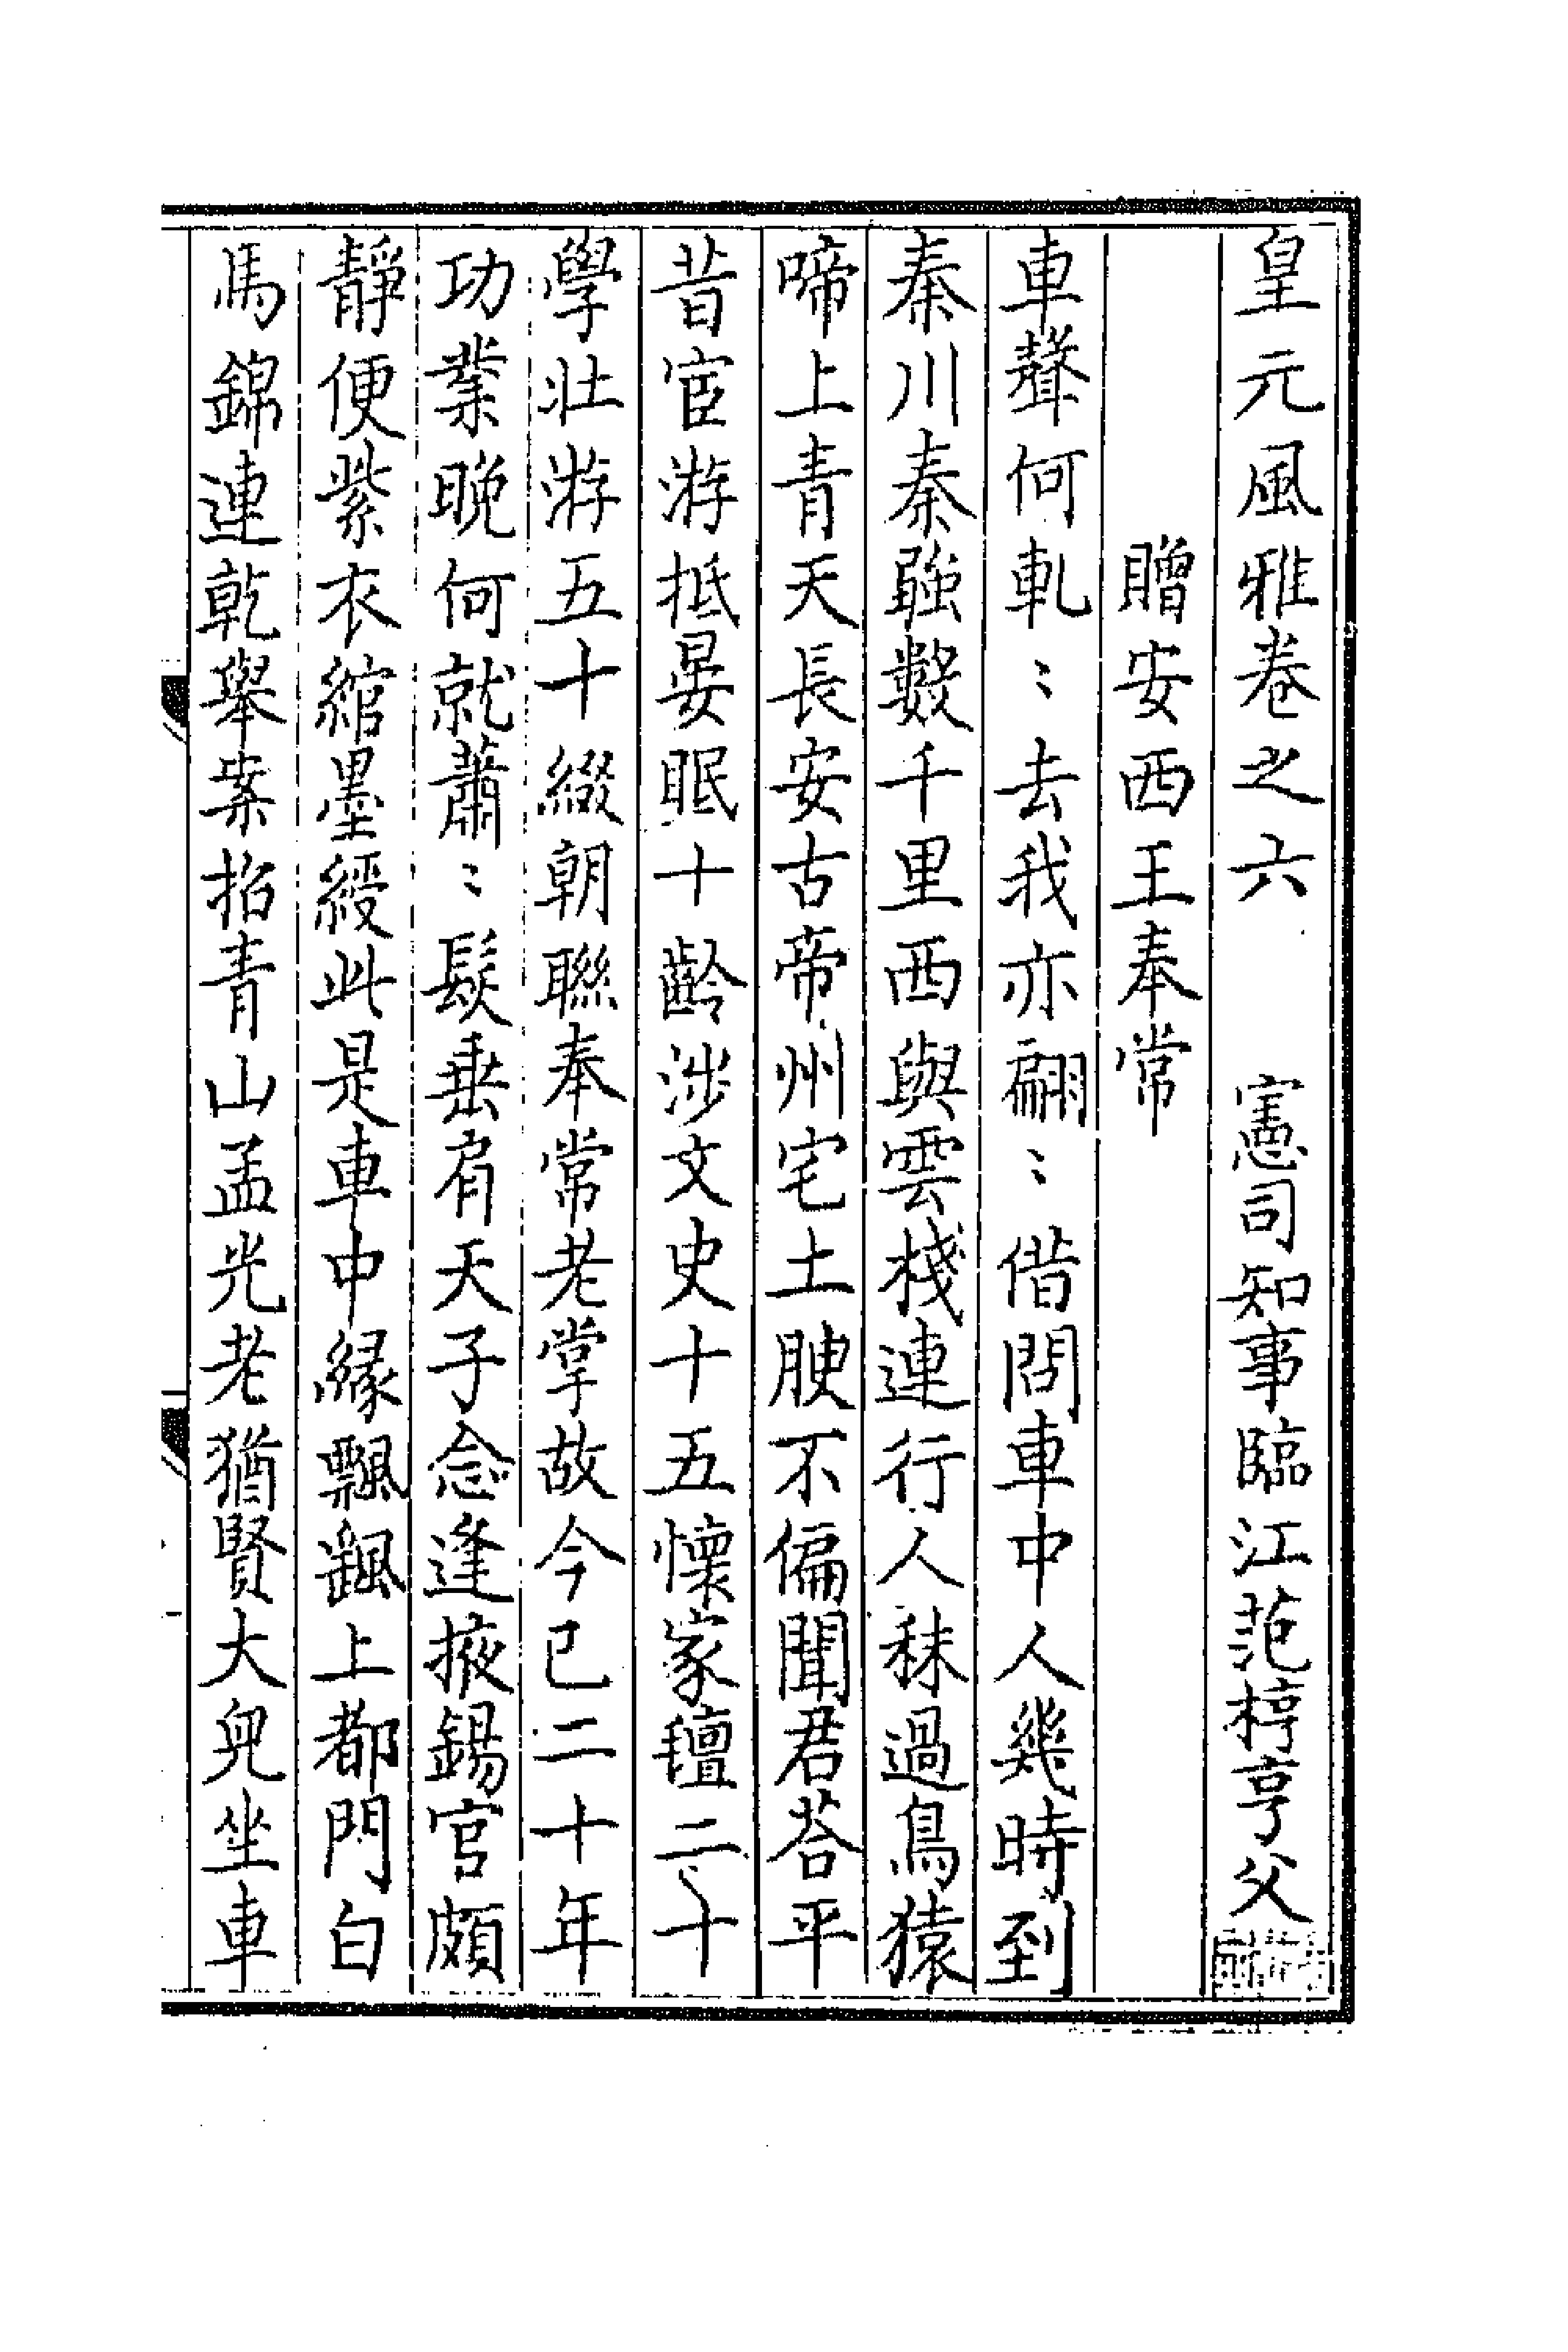 皇元風雅卷之六　憲司知事臨江范梈亨父
贈安西王奉常
車聲何軋〻去我亦翩〻借問車中人幾時到
秦川秦強數千里西與雲棧連行人秣過鳥猿
啼上青天長安古帝州宅土腴不偏聞君荅平
昔宦游抵晏眠十齡涉文史十五懷家氊二十
學壯游五十綴朝聯奉常老掌故今已二十年
功業晚何就蕭〻髮垂肩天子念逢掖錫官頗
靜便紫衣綰墨綬此是車中緣飄飖上都門白
馬錦連乾舉案招青山孟光老猶賢大兒坐車